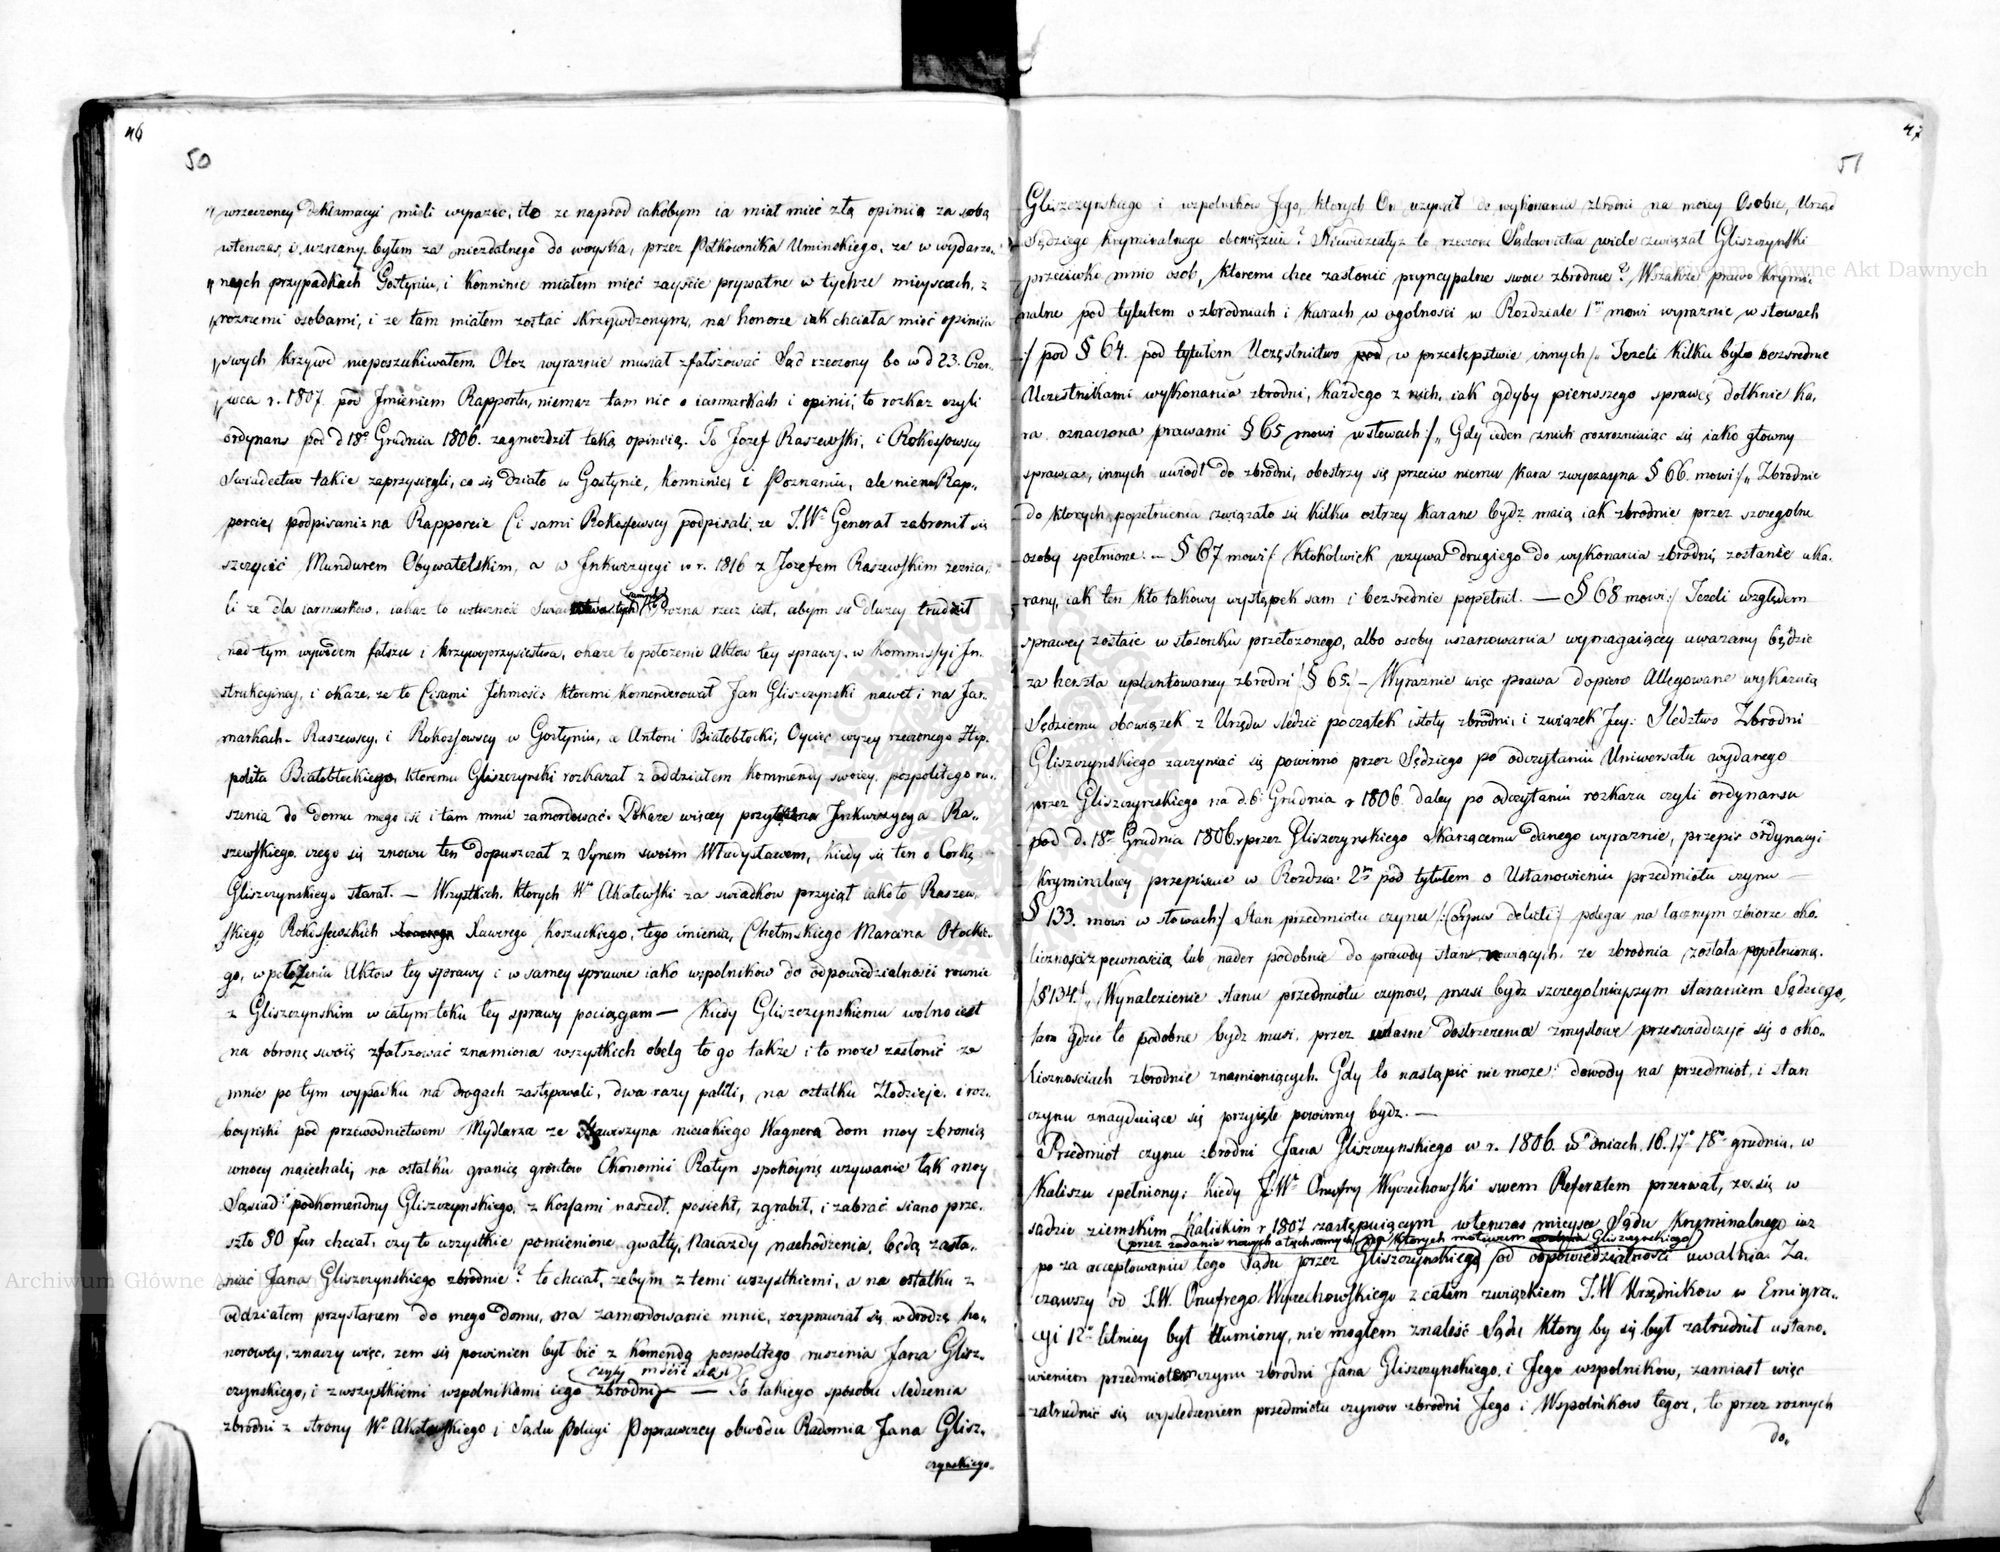 46
50
wrzeczoney deklamacyi mieli wyrazic, ito ze naprod iakobym ia miał mieć złą opiniią za sobą
wtenczas, i uznany byłem za niezdatnego do woyska, przez Połkownika Uminskiego, ze w wydarzo-
nych przypadkach Gostyniu, i Konninie miałem mieć zayscie prywatne w tychze mieyscach, z
roznemi osobami, i ze tam miałem zostać skrzywdzonym, na honorze iak chciała mieć opiniia
swych krzywd nieposzukiwałem. Otoz wyraznie musiał zfałszować Sąd rzeczony bo w d 23. Czer-
wca r. 1807. pod Jmieniem Rapportu, niemasz tam nic o iarmarkach i opinii, to rozkaz czyli
ordynans pod d 18° Grudnia 1806. zagniezdził taką opiniią. To Jozef Raszewski, i Rokossowscy
Swiadectwo takie zaprzysięgli, co się działo w Gostynie, Konninie, i Poznaniu, ale niena Rap-
porcie, podpisani z na Rapporcie Ci sami Rokossowscy podpisali, ze J.W. Generał zabronił się
szczycić Mundurem Obywatelskim, a w Jnkwizycyi w r. 1816 z Jozefem Raszewskim zezna-
li ze dla iarmarkow, iakaz to wsteczność rozna rzecz iest, abym się dłuzey trudnił
nad tym wywodem fałszu i krzywoprzysiestwa, okaze to połozenie Aktow tey sprawy, w Kommissyi Jn-
strukcyiney, i okaze, ze to Cisami Jchmość, ktoremi komenderował Jan Gliszczynski nawet i na Jar-
markach - Raszewscy, i Rokossowscy w Gostyniu, a Antoni Białobłocki, Oyciec wyzey rzeczonego Hip-
polita Białobłockiego, ktoremu Gliszczynski rozkazał z oddziałem kommendy swoiey, pospolitego ru-
szenia do domu mego iść i tam mnie zamordować. Pokaze więcey Jnkwizycya Ra-
szewskiego, czego się znowu ten dopuszczał z Synem swoim Władysławem, kiedy się ten o Corkę
Gliszczynskiego starał. — Wszystkich, ktorych W° Akatowski za swiadkow przyiął iako to Raszew-
skiego Rokossowskich Xawerego Koszuckiego, tego imienia, Chełmskiego Marcina Otockie-
go, w połozeniu Aktow tey sprawy i w samey sprawie iako wspolnikow do odpowiedzialności rownie
z Gliszczynskim w całym toku tey sprawy pociągam — Kiedy Gliszczynskiemu wolno iest
na obronę swoię zfałszować znamiona wszystkich obelg to go takze i to moze zasłonić ze
mnie po tym wypadku na drogach zastępowali, dwa razy palili, na ostatku Złodzieie, i roz-
boyniki pod przewodnictwem Mydlarza ze Stawiszyna nieiakiego Wagnera dom moy zbronią
wnocy naiechali, na ostatku granicę grontow Ekonomii Ratyn spokoynę uzywanie łąk moy
Sąsiad podkomendny Gliszczynskiego, z Kossami naszedł, posiekł, zgrabił, i zabrać siano prze-
szło 80 fur chciał, czy to wszystkie pomienione gwałty, Naiazdy nachodzenia, będą zasła-
niać Jana Gliszczynskiego zbrodnie? to chciał, zebym z temi wszystkiemi, a na ostatku z
oddziałem przysłanem do mego domu, na zamordowanie mnie, rozprawiał się w drodze ho-
norowey, znaczy więc, zem się powinien był bić z komendą pospolitego ruszenia Jana Glisz-
czyli mścić się
czynskiego, i zwszystkiemi wspolnikami iego zbrodni — To takiego sposobu sledzenia
zbrodni z strony W° Akatowskiego i Sądu Policyi Poprawczey obwodu Radomia Jana Glisz-
czynskiego.
47
51
Gliszczynskiego i wspolnikow Jego, ktorych On uzywał do wykonania zbrodni na moiey Osobie, Urząd
Sędziego kryminalnego obowięzuie? Niewidziałyz to rzeczone Sądownictwa wiele związał Gliszczynski
przeciwko mnie osob, ktoremi chce zasłonić pryncypalne swoie zbrodnie? Wszakze prawo krymi-
nalne pod tytułem o zbrodniach i karach w ogolności w Rozdziale 1m mowi wyraznie, w słowach
:/ pod § 64. pod tytułem Uczęstnictwo w przestępstwie innych /„ Jezeli kilku było bezsrednie
Uczestnikami wykonania zbrodni, kazdego z nich, iak gdyby pierwszego sprawcę dotknie ka-
ra oznaczona prawami § 65 mowi wsłowach :/„ Gdy ieden znich rozrozniaiąc się iako głowny
sprawca, innych uwiodł do zbrodni, obostrzy się przeciw niemu kara zwyczayna § 66. mowi :/„ Zbrodnie
do ktorych popełnienia związało się kilku ostrzey karane bydz maią iak zbrodnie przez szczegolne
osoby spełnione. — § 67 mowi :/ Ktokolwiek uzywa drugiego do wykonania zbrodni, zostanie uka-
rany, iak ten kto takowy występek sam i bezsrednie popełnił. — § 68 mowi :/ Jezeli względem
sprawcy zostaie w stosonku przełozonego, albo osoby uszanowania wymagaiącey uwazany będzie
za herszta uplantowaney zbrodni § 65. — Wyraznie więc prawa dopiero Allegowane wykazuią
Sędziemu obowiązek z Urzędu sledzić początek istoty zbrodni, i związek Jey: Sledztwo Zbrodni
Gliszczynskiego zaczynać się powinno przez Sędziego po odczytaniu Uniwersału wydanego
przez Gliszczynskiego na d. 6. Grudnia r 1806. daley po odczytaniu rozkazu czyli ordynansu
pod d. 18° Grudnia 1806. przez Gliszczynskiego skarzącemu danego wyraznie, przepis ordynacyi
kryminalney przepisuie w Rozdzia: 2m pod tytułem o Ustanowieniu przedmiotu czynu —
§ 133. mowi w słowach :/ Stan przedmiotu czynu /:Corpus delicti:/ polega na łącznym zbiorze oko-
liczności z pewnością lub nader podobnie do prawdy stanowiących, ze zbrodnia została popełnioną.
/§ 134./„ Wynalezienie stanu przedmiotu czynow, musi bydz szczegolnieyszym staraniem Sędziego,
tam gdzie to podobne bydz musi, przez własne dostrzezenia zmysłowe przeswiadczyć się o oko-
licznosciach zbrodnie znamioniących. Gdy to nastąpić nie moze: dowody na przedmiot, i stan
czynu znayduiące się przyięte powinny bydz. —
Przedmiot czynu zbrodni Jana Gliszczynskiego w r. 1806. w dniach 16. 17° 18° grudnia, w
Kaliszu spełniony; kiedy J.W° Onufry Wyczechowski swem Referatem przerwał, ze się w
sądzie ziemskim Kaliskim r 1807 zastępuiącym wtenczas mieysce Sądu kryminalnego iuz
przez zadanie nowych ktorych motiwum Gliszczynskiego
po za acceptowaniu tego Sądu przez Gliszczynskiego od odpowiedzialności uwalnia. Za-
cząwszy od J.W. Onufrego Wyczechowskiego z całem związkiem J.W Urzędnikow w Emigra-
cyi 12° letniey był tłumiony, nie mogłem znaleść Sądu ktory by się był zatrudnił ustano-
wieniem przedmiotem czynu zbrodni Jana Gliszczynskiego, i Jego wspolnikow, zamiast więc
zatrudnić się wysledzeniem przedmiotu czynow zbrodni Jego i Wspolnikow tegoz, to przez roznych
do-
Archiwum Główne Akt Dawnych